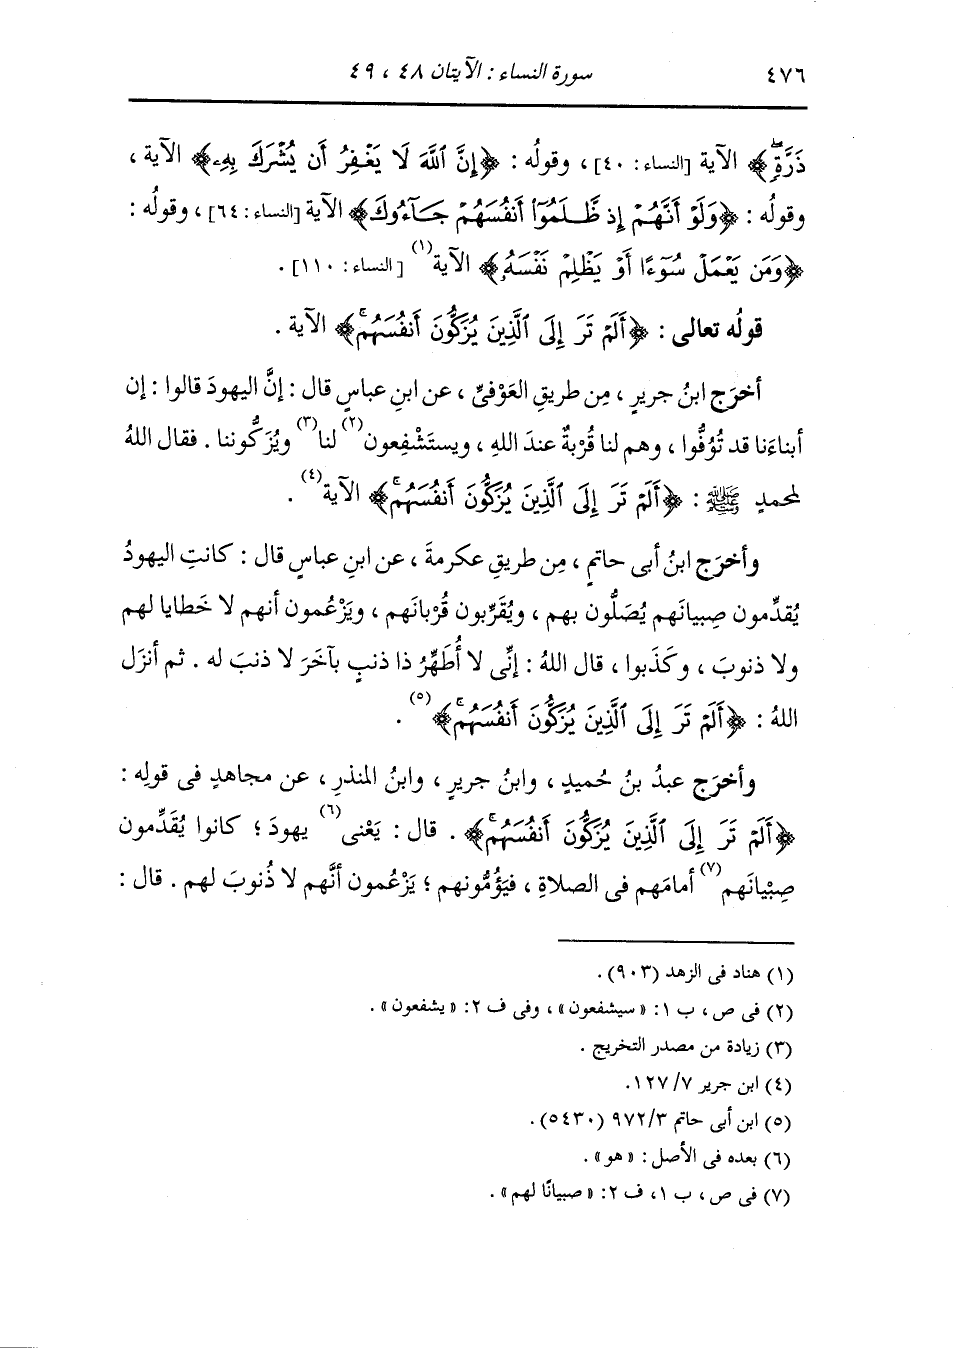 ٤٧٦ سورة النساء : الآيتان ٤٨ ، ٤٩
ذَرَّةٍۖ﴾ الآية [النساء: ٤٠] ، وقولُه : ﴿إِنَّ ٱللَّهَ لَا يَغْفِرُ أَن يُشْرَكَ بِهِۦ﴾ الآية ،
وقولُه : ﴿وَلَوْ أَنَّهُمْ إِذ ظَّلَمُوٓا۟ أَنفُسَهُمْ جَآءُوكَ﴾ الآية [النساء: ٦٤] ، وقولُه :
﴿وَمَن يَعْمَلْ سُوٓءًا أَوْ يَظْلِمْ نَفْسَهُۥ﴾ الآية(١) [النساء: ١١٠] .
قولُه تعالى : ﴿أَلَمْ تَرَ إِلَى ٱلَّذِينَ يُزَكُّونَ أَنفُسَهُمۚ﴾ الآية .
أخرَج ابنُ جريرٍ ، مِن طريقِ العَوْفىِّ ، عن ابنِ عباسٍ قال : إنَّ اليهودَ قالوا : إن
أبناءَنا قد تُوُفُّوا ، وهم لنا قُرْبةٌ عندَ اللهِ ، ويستَشْفِعون(٢) لنا(٣) ويُزَكُّوننا . فقال اللهُ
لمحمدٍ ﷺ : ﴿أَلَمْ تَرَ إِلَى ٱلَّذِينَ يُزَكُّونَ أَنفُسَهُمۚ﴾ الآية(٤) .
وأخرَج ابنُ أبى حاتمٍ ، مِن طريقِ عكرمةَ ، عن ابنِ عباسٍ قال : كانتِ اليهودُ
يُقدِّمون صِبيانَهم يُصَلُّون بهم ، ويُقَرِّبون قُرْبانَهم ، ويَزْعُمون أنهم لا خَطايا لهم
ولا ذنوبَ ، وكَذَبوا ، قال اللهُ : إنِّى لا أُطَهِّرُ ذا ذنبٍ بآخَرَ لا ذنبَ له . ثم أنزَل
اللهُ : ﴿أَلَمْ تَرَ إِلَى ٱلَّذِينَ يُزَكُّونَ أَنفُسَهُمۚ﴾(٥) .
وأخرَج عبدُ بنُ حُميدٍ ، وابنُ جريرٍ ، وابنُ المنذرِ ، عن مجاهدٍ فى قولِه :
﴿أَلَمْ تَرَ إِلَى ٱلَّذِينَ يُزَكُّونَ أَنفُسَهُمۚ﴾ . قال : يَعْنى(٦) يهودَ ؛ كانوا يُقَدِّمون
صِبْيانَهم(٧) أمامَهم فى الصلاةِ ، فيَؤُمُّونهم ؛ يَزْعُمون أنَّهم لا ذُنوبَ لهم . قال :
(١) هناد فى الزهد (٩٠٣) .
(٢) فى ص ، ب ١: «سيشفعون» ، وفى ف ٢: «يشفعون» .
(٣) زيادة من مصدر التخريج .
(٤) ابن جرير ٧/ ١٢٧.
(٥) ابن أبى حاتم ٩٧٢/٣ (٥٤٣٠) .
(٦) بعده فى الأصل : «هو» .
(٧) فى ص ، ب ١، ف ٢: «صبيانًا لهم» .